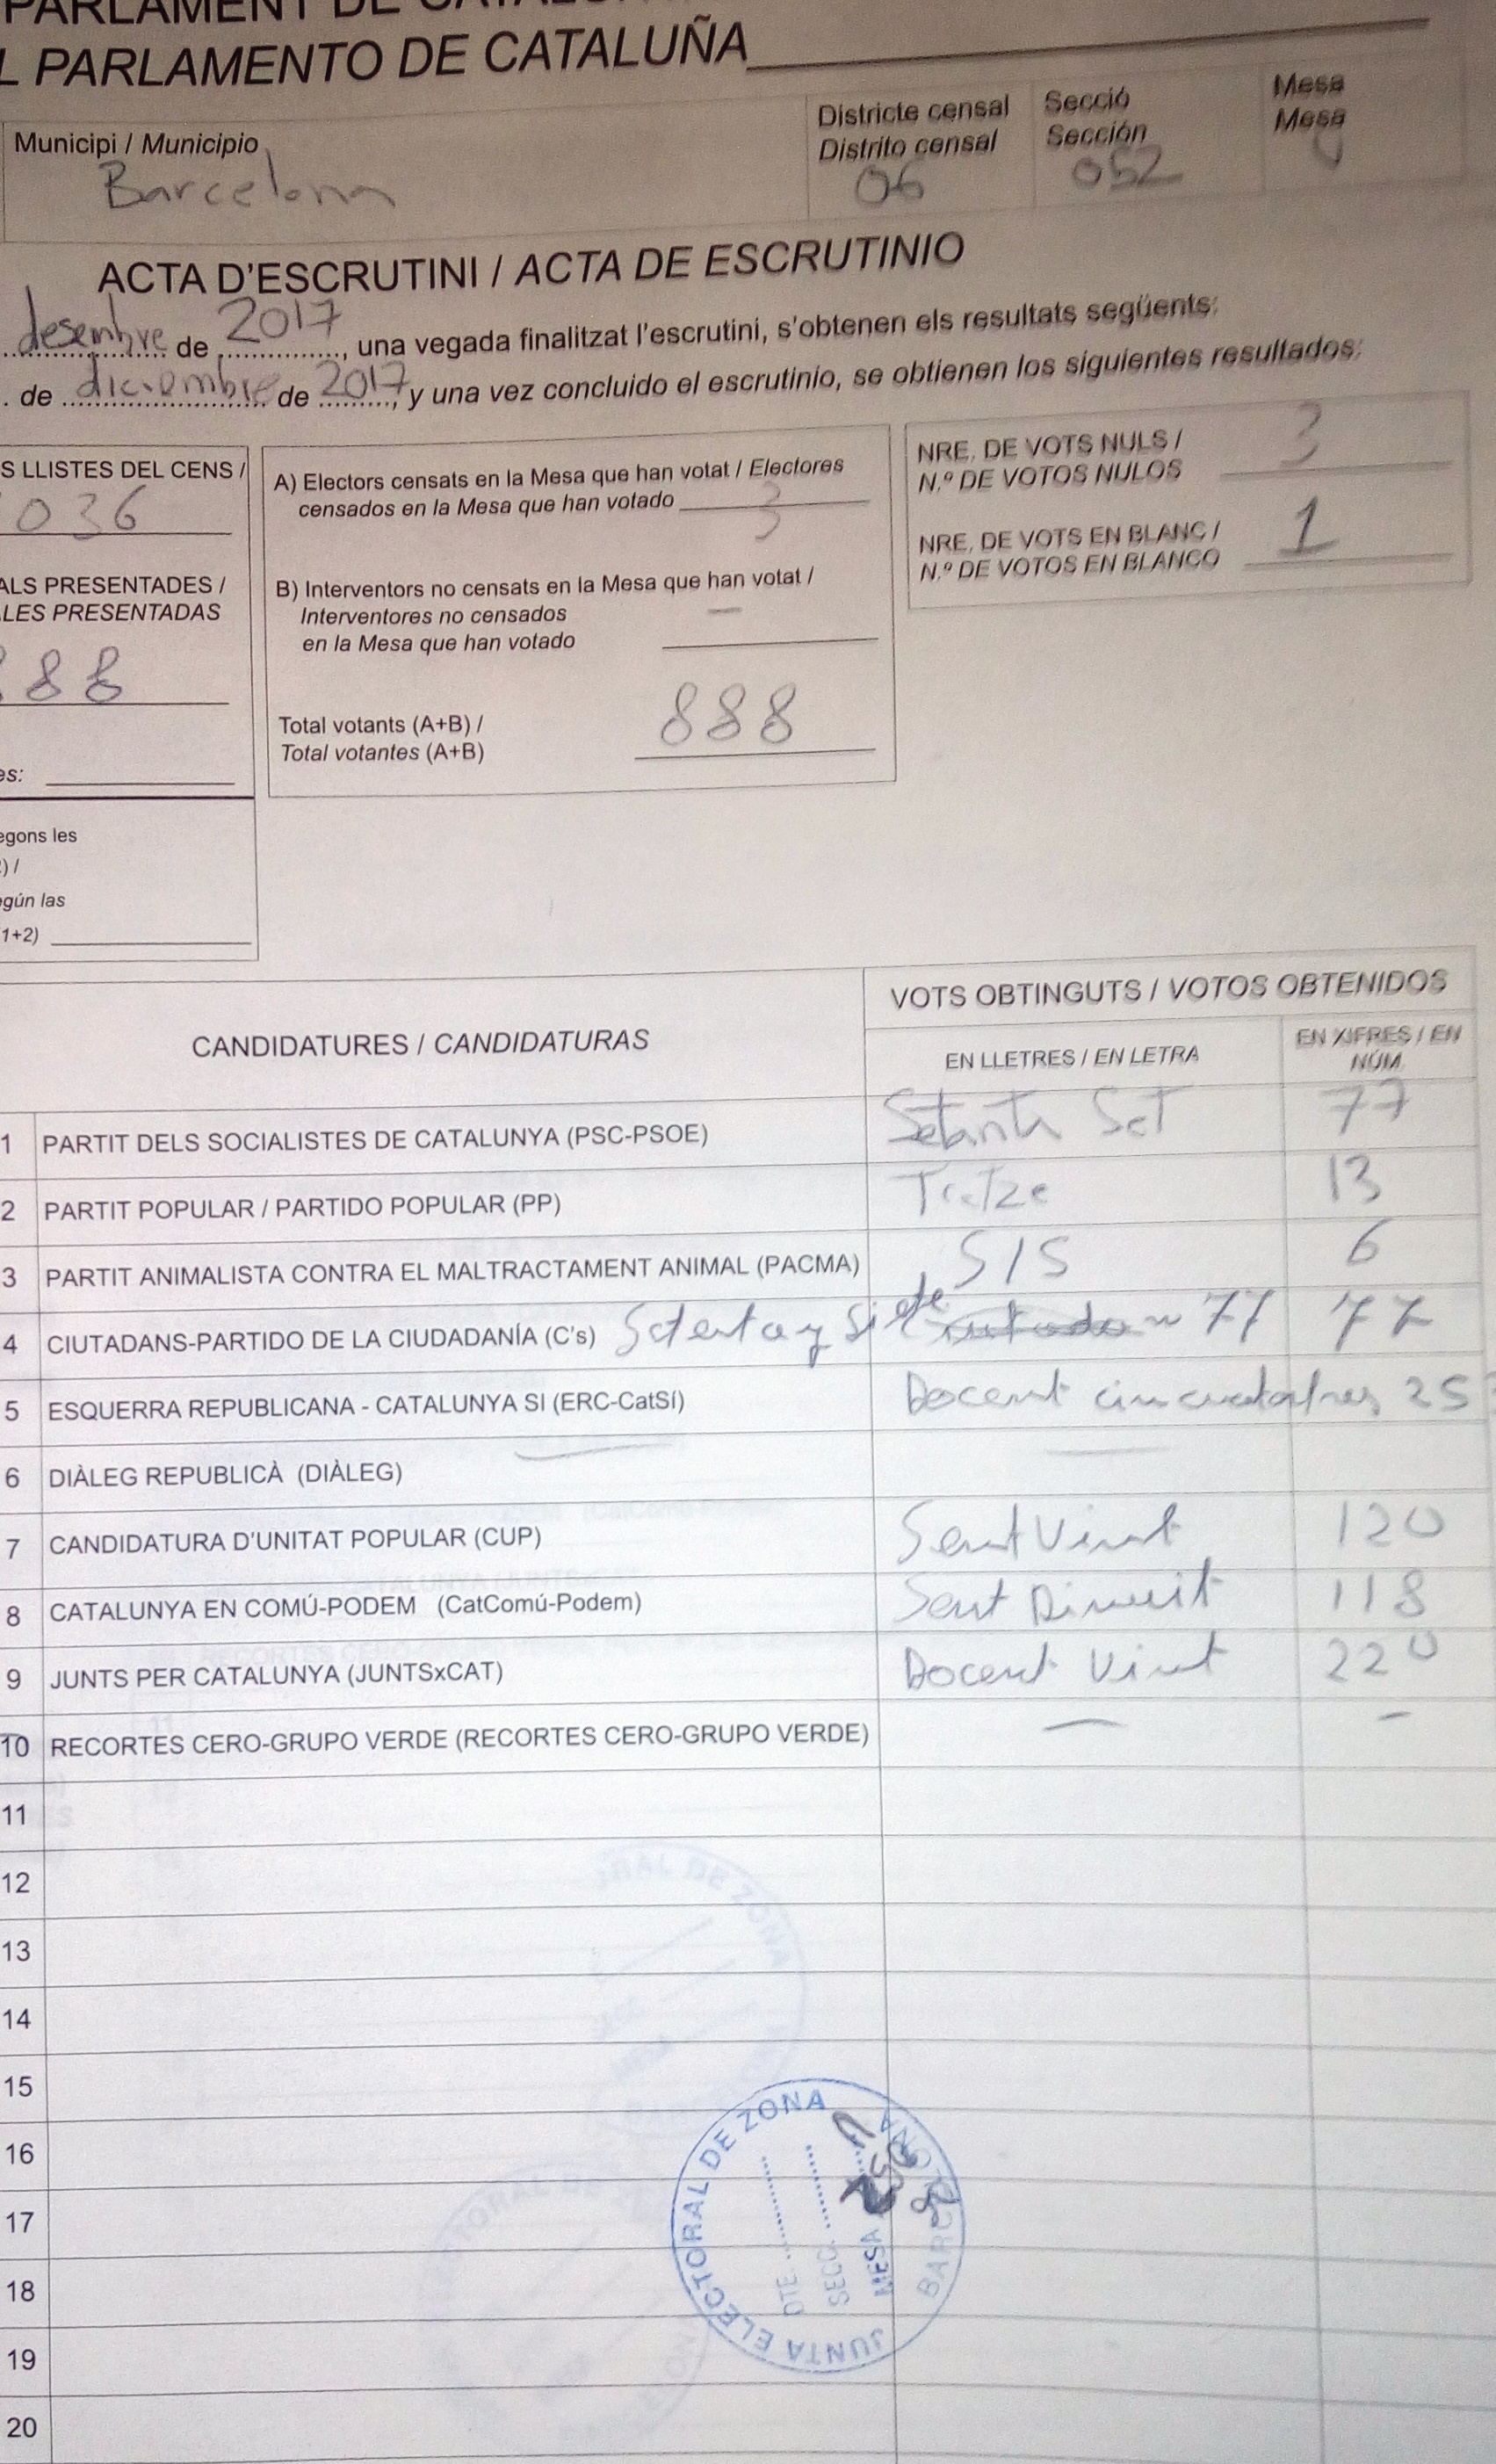 PARLAMENT DE CATALUN
L PARLAMENTO DE CATALUÑA
Municipi / Municipio
Barcelona
Districte censal
Distrito censal
06
Secció
Sección
052
Mesa
Mesa
U
ACTA D'ESCRUTINI / ACTA DE ESCRUTINIO
desembre de 2017, una vegada finalitzat l'escrutini, s'obtenen els resultats següents:
. de diciembre de 2017, y una vez concluido el escrutinio, se obtienen los siguientes resultados:
S LLISTES DEL CENS /
1036
ALS PRESENTADES /
LES PRESENTADAS
888
es:
egons les
) /
egún las
1+2)
A) Electors censats en la Mesa que han votat / Electores
censados en la Mesa que han votado
3
B) Interventors no censats en la Mesa que han votat /
Interventores no censados
en la Mesa que han votado
—
Total votants (A+B) /
Total votantes (A+B)
888
NRE. DE VOTS NULS /
N.º DE VOTOS NULOS
3
NRE. DE VOTS EN BLANC /
N.º DE VOTOS EN BLANCO
1
CANDIDATURES / CANDIDATURAS
VOTS OBTINGUTS / VOTOS OBTENIDOS
EN LLETRES / EN LETRA
EN XIFRES / EN
NÚM.
1 PARTIT DELS SOCIALISTES DE CATALUNYA (PSC-PSOE) Setanta Set 77
2 PARTIT POPULAR / PARTIDO POPULAR (PP) Tretze 13
3 PARTIT ANIMALISTA CONTRA EL MALTRACTAMENT ANIMAL (PACMA) SIS 6
4 CIUTADANS-PARTIDO DE LA CIUDADANÍA (C's) Setenta y Siete 77 77
5 ESQUERRA REPUBLICANA - CATALUNYA SI (ERC-CatSí) Docent cincuatatres 253
6 DIÀLEG REPUBLICÀ (DIÀLEG) —
7 CANDIDATURA D'UNITAT POPULAR (CUP) Sent Vint 120
8 CATALUNYA EN COMÚ-PODEM (CatComú-Podem) Sent Divuit 118
9 JUNTS PER CATALUNYA (JUNTSxCAT) Docent Vint 220
10 RECORTES CERO-GRUPO VERDE (RECORTES CERO-GRUPO VERDE) — —
11
12
13
14
15
16
17
18
19
20
JUNTA ELECTORAL DE ZONA
BARCELONA
DTE.
SECC.
MESA